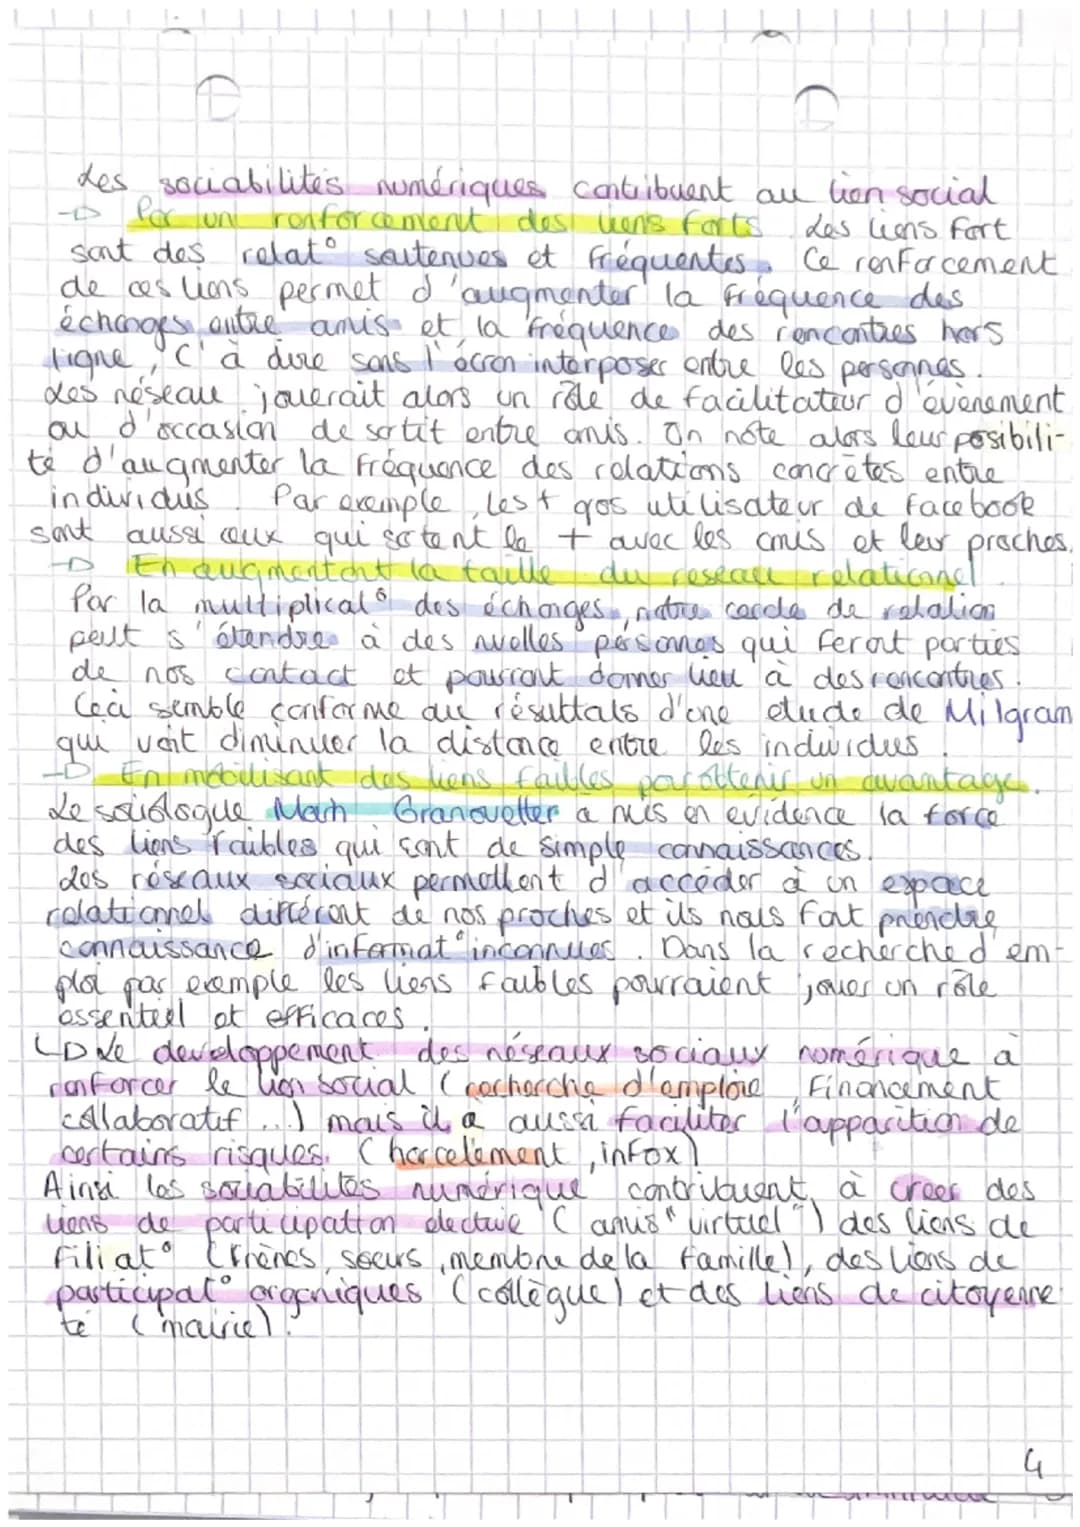 Les sociabilités numériques contribuent au lien social
→ Par un renforcement des liens forts. Les liens fort
sont des relat° soutenues et fréquentes. Ce renforcement
de ces liens permet d'augmenter la fréquence des
échanges entre amis et la fréquence des rencontres hors
ligne, c'à dire sans l'écran interposer entre les personnes.
Les réseau jouerait alors un rôle de facilitateur d'évènement
ou d'occasion de sortit entre amis. On note alors leur posibili-
té d'augmenter la fréquence des relations concrètes entre
individus. Par exemple, les + gros utilisateur de facebook
sont aussi ceux qui sortent le + avec les amis et leur proches.
→ En augmentant la taille du réseau relationnel.
Par la multiplicat° des échanges, notre cercle de relation
peut s'étendre à des nvelles personnes qui feront parties
de nos contact et pourront donner lieu à des rencontres.
Ceci semble conforme au résultats d'une étude de Milgram
qui voit diminuer la distance entre les individus.
→ En mobilisant des liens faibles pour obtenir un avantage.
Le sociologue Mark Granovetter a mis en évidence la force
des liens faibles qui sont de simple connaissances.
Les réseaux sociaux permettent d'accéder à un espace
relationnel différent de nos proches et ils nous font prendre
connaissance d'informat° inconnues. Dans la recherche d'em-
ploi par exemple les liens faibles pourraient jouer un rôle
essentiel et efficaces.
↳ Le developpement des réseaux sociaux numérique à
renforcer le lien social (recherche d'emploie, financement
collaboratif ...) mais il a aussi faciliter l'apparition de
certains risques. (harcelement, infox)
Ainsi les sociabilités numérique contribuent, à créer des
liens de participation élective (amis "virtuel") des liens de
filiat° (frères, soeurs, membre de la famille), des liens de
participat° organiques (collègue) et des liens de citoyenne-
té (mairie).
4